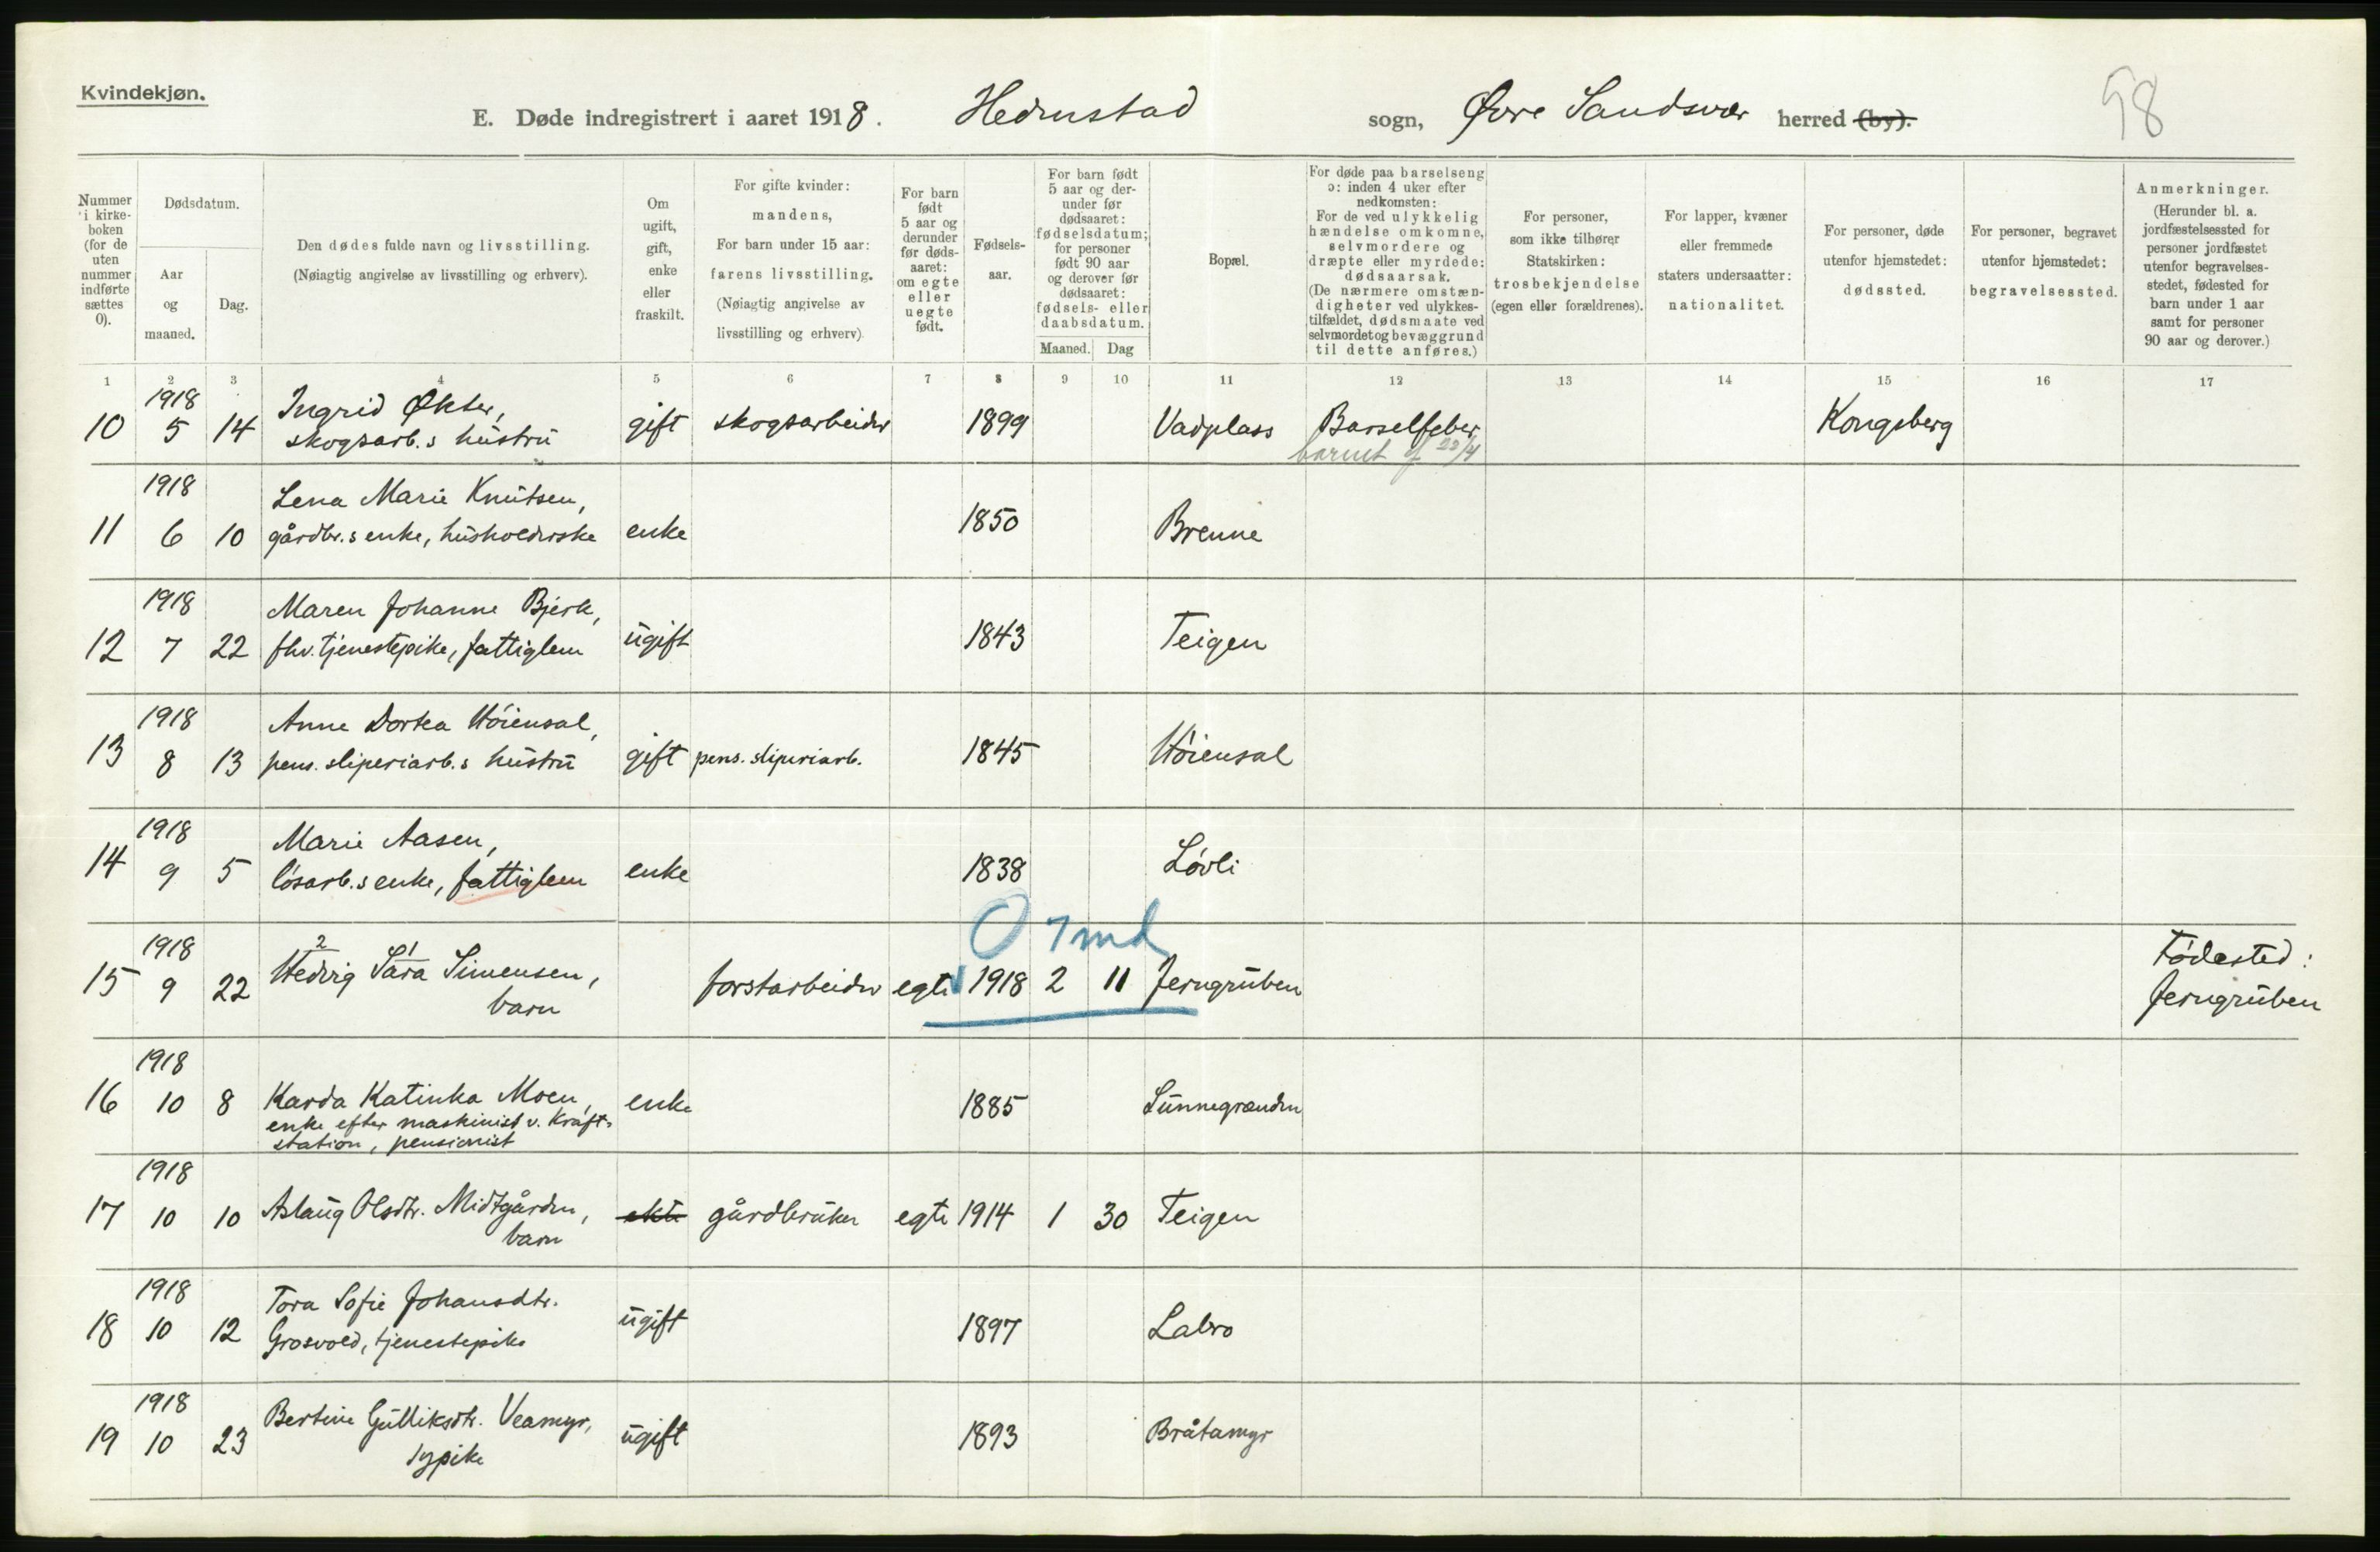 Kvindekjøn.
E. Døde indregistrert i aaret 1918. Hedenstad sogn, Øvre Sandsvær herred (by).
98
Nummer i kirke-boken (for de uten nummer indførte sættes 0).
Dødsdatum.
Aar og maaned.
Dag.
Den dødes fulde navn og livsstilling.
(Nøiagtig angivelse av livsstilling og erhverv).
Om ugift, gift, enke eller fraskilt.
For gifte kvinder:
mandens,
For barn under 15 aar:
farens livsstilling.
(Nøiagtig angivelse av
livsstilling og erhverv).
For barn født 5 aar og derunder før døds-aaret: om egte eller uegte født.
Fødsels-aar.
For barn født 5 aar og der-under før dødsaaret: fødselsdatum; for personer født 90 aar og derover før dødsaaret: fødsels- eller daabsdatum.
Maaned. Dag
Bopæl.
For døde paa barselseng
ɔ: inden 4 uker efter
nedkomsten:
For de ved ulykkelig
hændelse omkomne,
selvmordere og
dræpte eller myrdede:
dødsaarsak.
(De nærmere omstæn-
digheter ved ulykkes-
tilfældet, dødsmaate ved
selvmordet og bevæggrund
til dette anføres.)
For personer,
som ikke tilhører
Statskirken:
trosbekjendelse
(egen eller forældrenes).
For lapper, kvæner
eller fremmede
staters undersaatter:
nationalitet.
For personer, døde
utenfor hjemstedet:
dødssted.
For personer, begravet
utenfor hjemstedet:
begravelsessted.
Anmerkninger.
(Herunder bl. a.
jordfæstelsessted for
personer jordfæstet
utenfor begravelses-
stedet, fødested for
barn under 1 aar
samt for personer
90 aar og derover.)
1 2 3 4 5 6 7 8 9 10 11 12 13 14 15 16 17
1918 Ingrid Økter,
10 5 14 skogsarb.s hustru gift skogsarbeider 1899 Vadplass Barselfeber Kongsberg
barnet f 22/4
1918 Lena Marie Knutsen,
11 6 10 gårdbr.s enke, husholderske enke 1850 Brenne
1918 Maren Johanne Bjerk,
12 7 22 fhv. tjenestepike, fattiglem ugift 1843 Teigen
1918 Anne Dortea Höiensal,
13 8 13 pens. sliperiarb.s hustru gift pens. sliperiarb. 1845 Höiensal
1918 Marie Aasen,
14 9 5 lösarb.s enke, fattiglem enke 1838 Lövli
0 7 md
1918 2 1 Födested:
15 9 22 Hedvig Sara Simensen, forstarbeider egte 1918 2 11 Jerngruben Jerngruben
barn
1918
16 10 8 Karda Katinka Moen, enke 1885 Sunnegrenden
enke efter maskinist v. Kraft-
station, pensionist
1918
17 10 10 Aslaug Olsdtr. Midtgården, ekte gårdbruker egte 1914 1 30 Teigen
barn
1918 Tora Sofie Johansdtr.
18 10 12 Grosvold, tjenestepike ugift 1897 Labro
1918 Bertine Gulliksdtr. Veamyr,
19 10 23 sypike ugift 1893 Bråtamyr